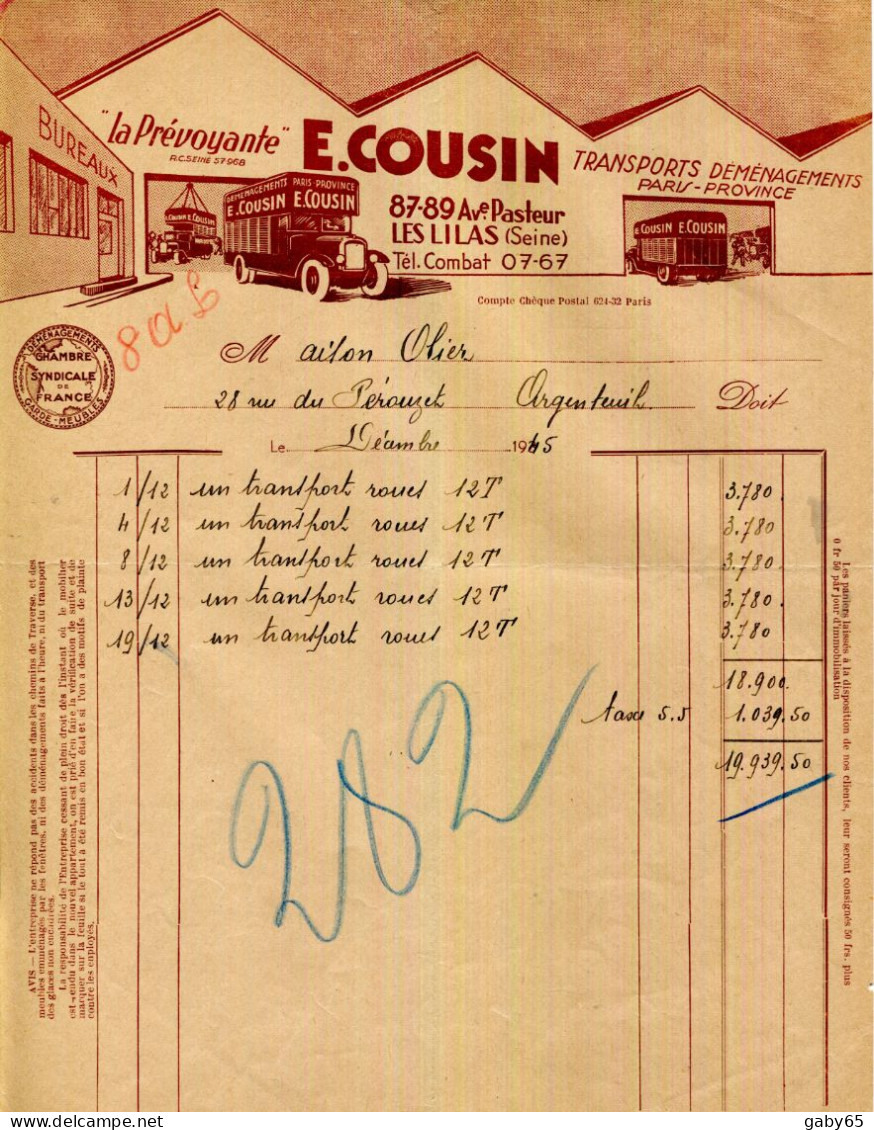 BUREAUX
"La Prévoyante"
R.C. SEINE 57968
E.COUSIN
TRANSPORTS DÉMÉNAGEMENTS
PARIS-PROVINCE
87-89 Ave. Pasteur
LES LILAS (Seine)
Tél. Combat 07-67
E.COUSIN E.COUSIN
DEMENAGEMENTS PARIS-PROVINCE
E.COUSIN E.COUSIN
E.COUSIN E.COUSIN
Compte Chèque Postal 624-32 Paris
DÉMÉNAGEMENTS
CHAMBRE
SYNDICALE
DE
FRANCE
GARDE-MEUBLES
Maison Olier
28 rue du Pérouzet Argenteuil. Doit
Le Décembre 1945
1/12 un transport roues 12T 3.780.
4/12 un transport roues 12T 3.780
8/12 un transport roues 12T 3.780.
13/12 un transport roues 12T 3.780.
19/12 un transport roues 12T 3.780
18.900.
taxe 5.5 1.039.50
19.939.50
282
AVIS — L'entreprise ne répond pas des accidents dans les chemins de Traverse, et des
meubles emménagés par les fenêtres, ni des déménagements faits à l'heure, ni du transport
des glaces non encadrées.
La responsabilité de l'Entreprise cessant de plein droit dès l'instant où le mobilier
est rendu dans le nouvel appartement, on est prié d'en faire la vérification de suite et de
marquer sur la feuille si le tout a été remis en bon état et si l'on a des motifs de plainte
contre les employés.
Les paniers laissés à la disposition de nos clients, leur seront consignés 50 frs. plus
0 fr 50 par jour d'immobilisation
gaby65